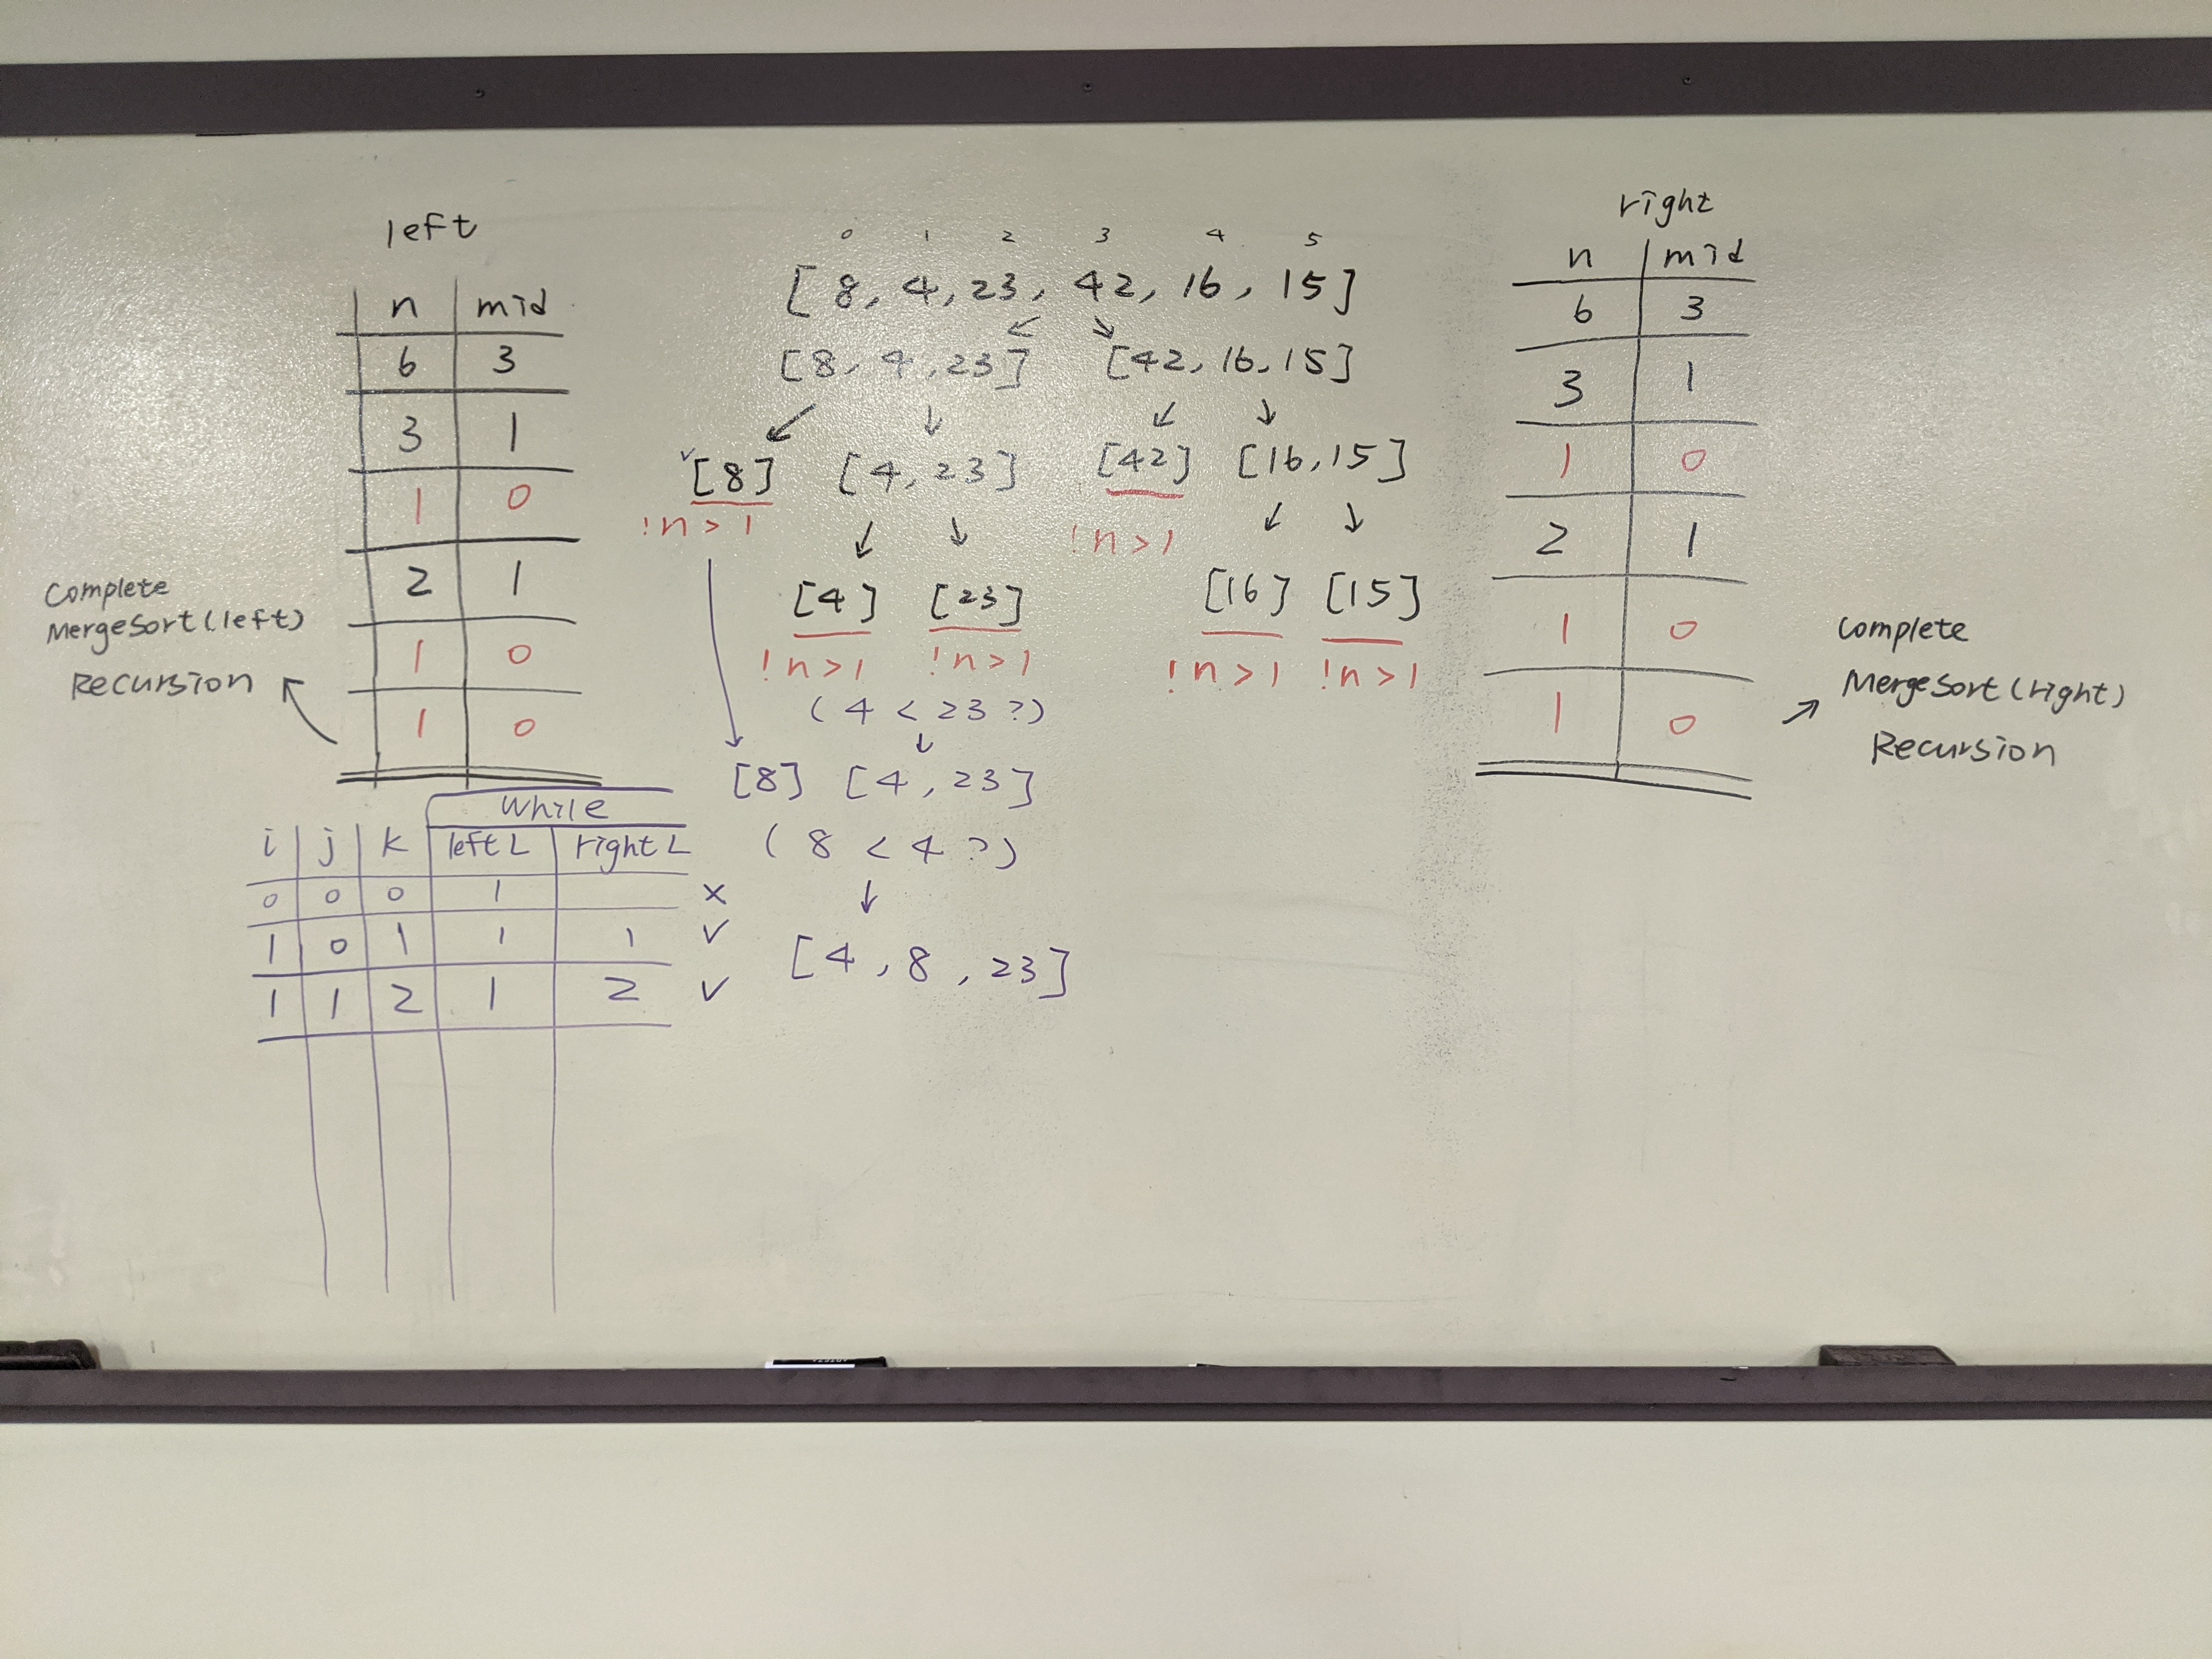 left
n mid
6 3
3 1
1 0
2 1
1 0
1 0
Complete
MergeSort(left)
Recursion
0 1 2 3 4 5
[8, 4, 23, 42, 16, 15]
[8, 4, 23] [42, 16, 15]
✓[8] [4, 23] [42] [16, 15]
!n>1 !n>1
[4] [23] [16] [15]
!n>1 !n>1 !n>1 !n>1
(4 < 23?)
[8] [4, 23]
(8 < 4?)
[4, 8, 23]
while
i j k left L right L
0 0 0 1 x
1 0 1 1 1 ✓
1 1 2 1 2 ✓
right
n mid
6 3
3 1
1 0
2 1
1 0
1 0
Complete
MergeSort(right)
Recursion